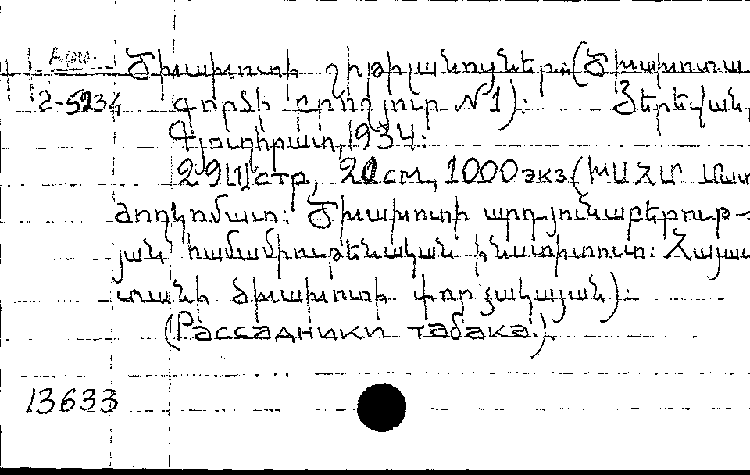 Ծխախոտի շիթիլանոցները: (Ծխախոտա
2-5234 գործի բրոշյուր №1): Յերեվան,
Գյուղհրատ, 1934:
29 стр, 20 см, 1000 экз (ԽՍՀՄ
ժողկոմատ: Ծխախոտի արդյունաբերութ-
յան համամիութենական ինստիտուտ: Հայաս
տանի ծխախոտի փորձակայան):
(Рассадники табака.)
13633